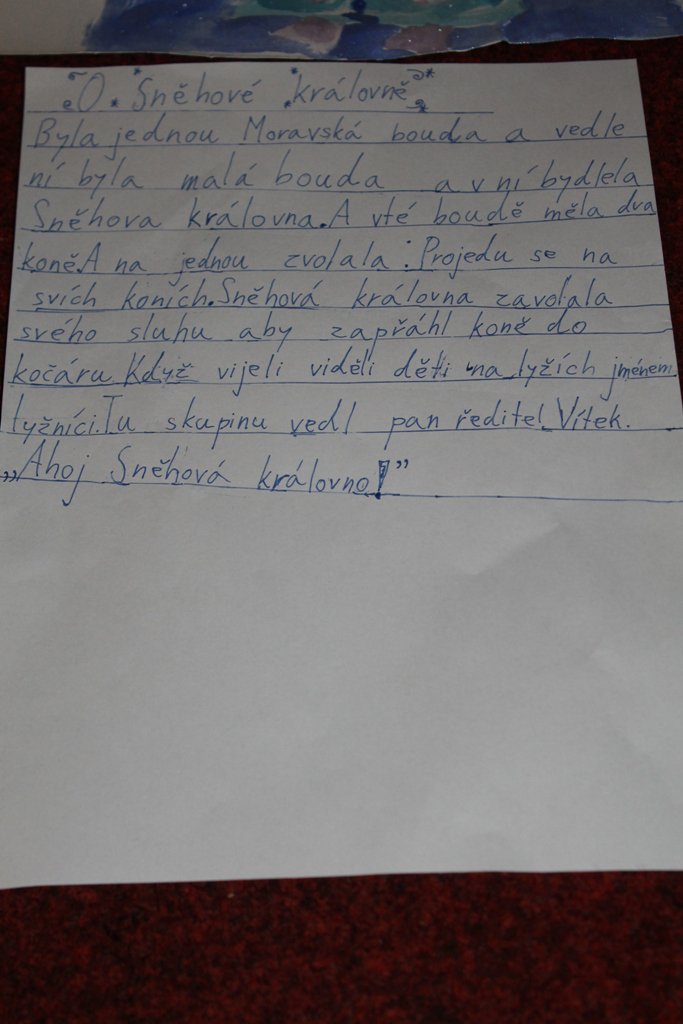 O Sněhové královně
Byla jednou Moravská bouda a vedle
ní byla malá bouda a v ní bydlela
Sněhova královna. A vté boudě měla dva
koně. A na jednou zvolala : Projedu se na
svích koních. Sněhová královna zavolala
svého sluhu aby zapřáhl koně do
kočáru. Když vijeli viděli děti na lyžích jménem
lyžníci. Tu skupinu vedl pan ředitel Vítek.
„Ahoj Sněhová královno!”